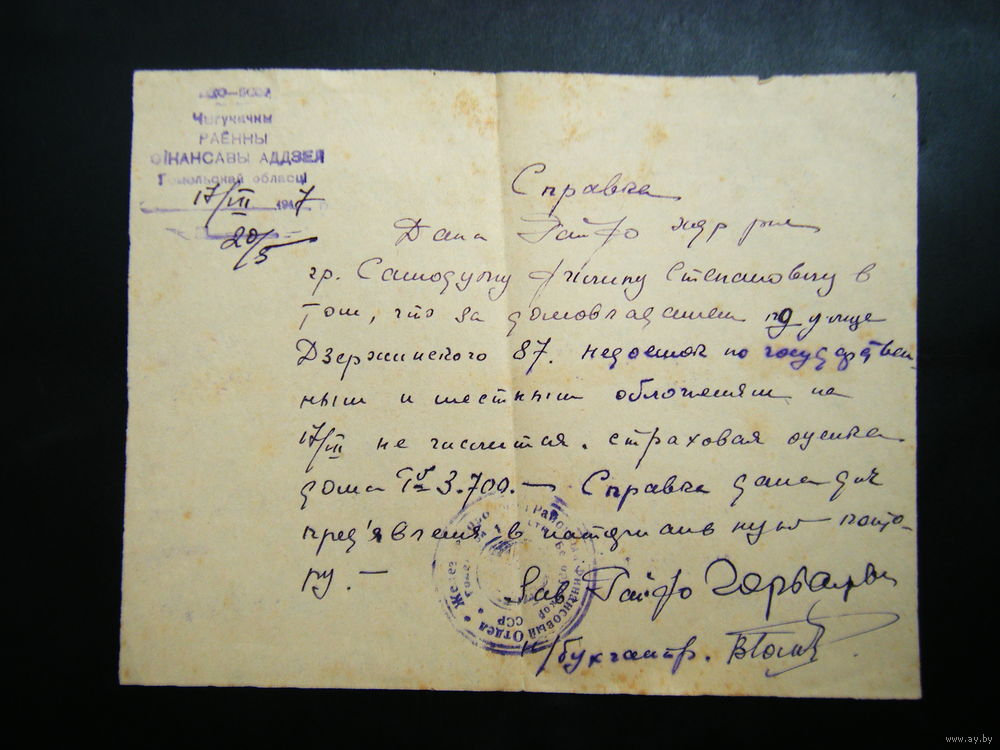 Чыгуначны
РАЁННЫ
ФІНАНСАВЫ АДДЗЕЛ
Гомельскай обласці
17/III 1947
20/5
Справка
Дана Райфо жд р-на
гр. Самодуму Филипу Степановичу в
том, что за домовладением по улице
Дзержинского 87. недоимок по государствен-
ным и местным обложениям на
17/III не числится. страховая оценка
дома 3.700.—
Справка дана для
пред'явления в нотариальную конто-
ру.—
Зав Райфо
Финансовый Отдел
ССР
/бухгалтр.
www.ay.by